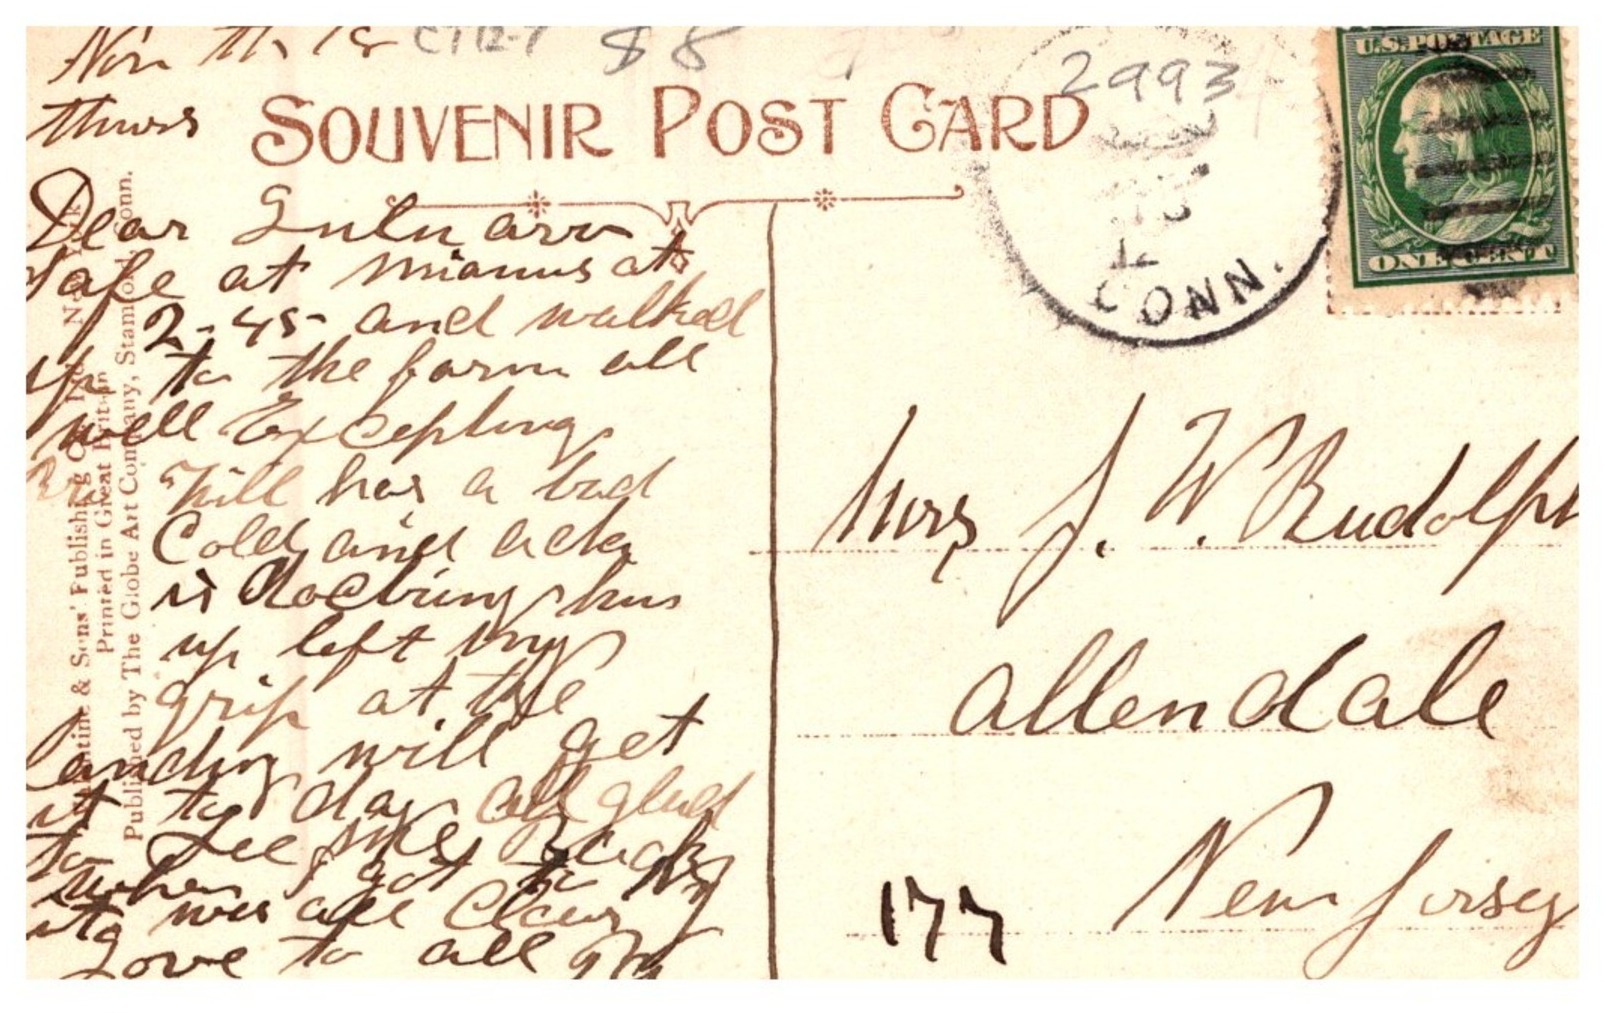 Nov th 18 CT12-7 $8
thurs
SOUVENIR POST CARD
2993
U.S. POSTAGE
ONE CENT
CONN.
Dear Lulu arr
safe at mianus at
2-45 and walked
up to the farm all
well Excepting
Will has a bad
Cold and
is Doctring his
up left my
grip at the
landing will get
it to day all glad
to see me Back
when I got to
it was all
Love to all
Valentine & Sons' Publishing Co. New York
Printed in Great Britain
Published by The Globe Art Company, Stamford, Conn.
Mrs J. W. Rudolph
allendale
New Jersey
177